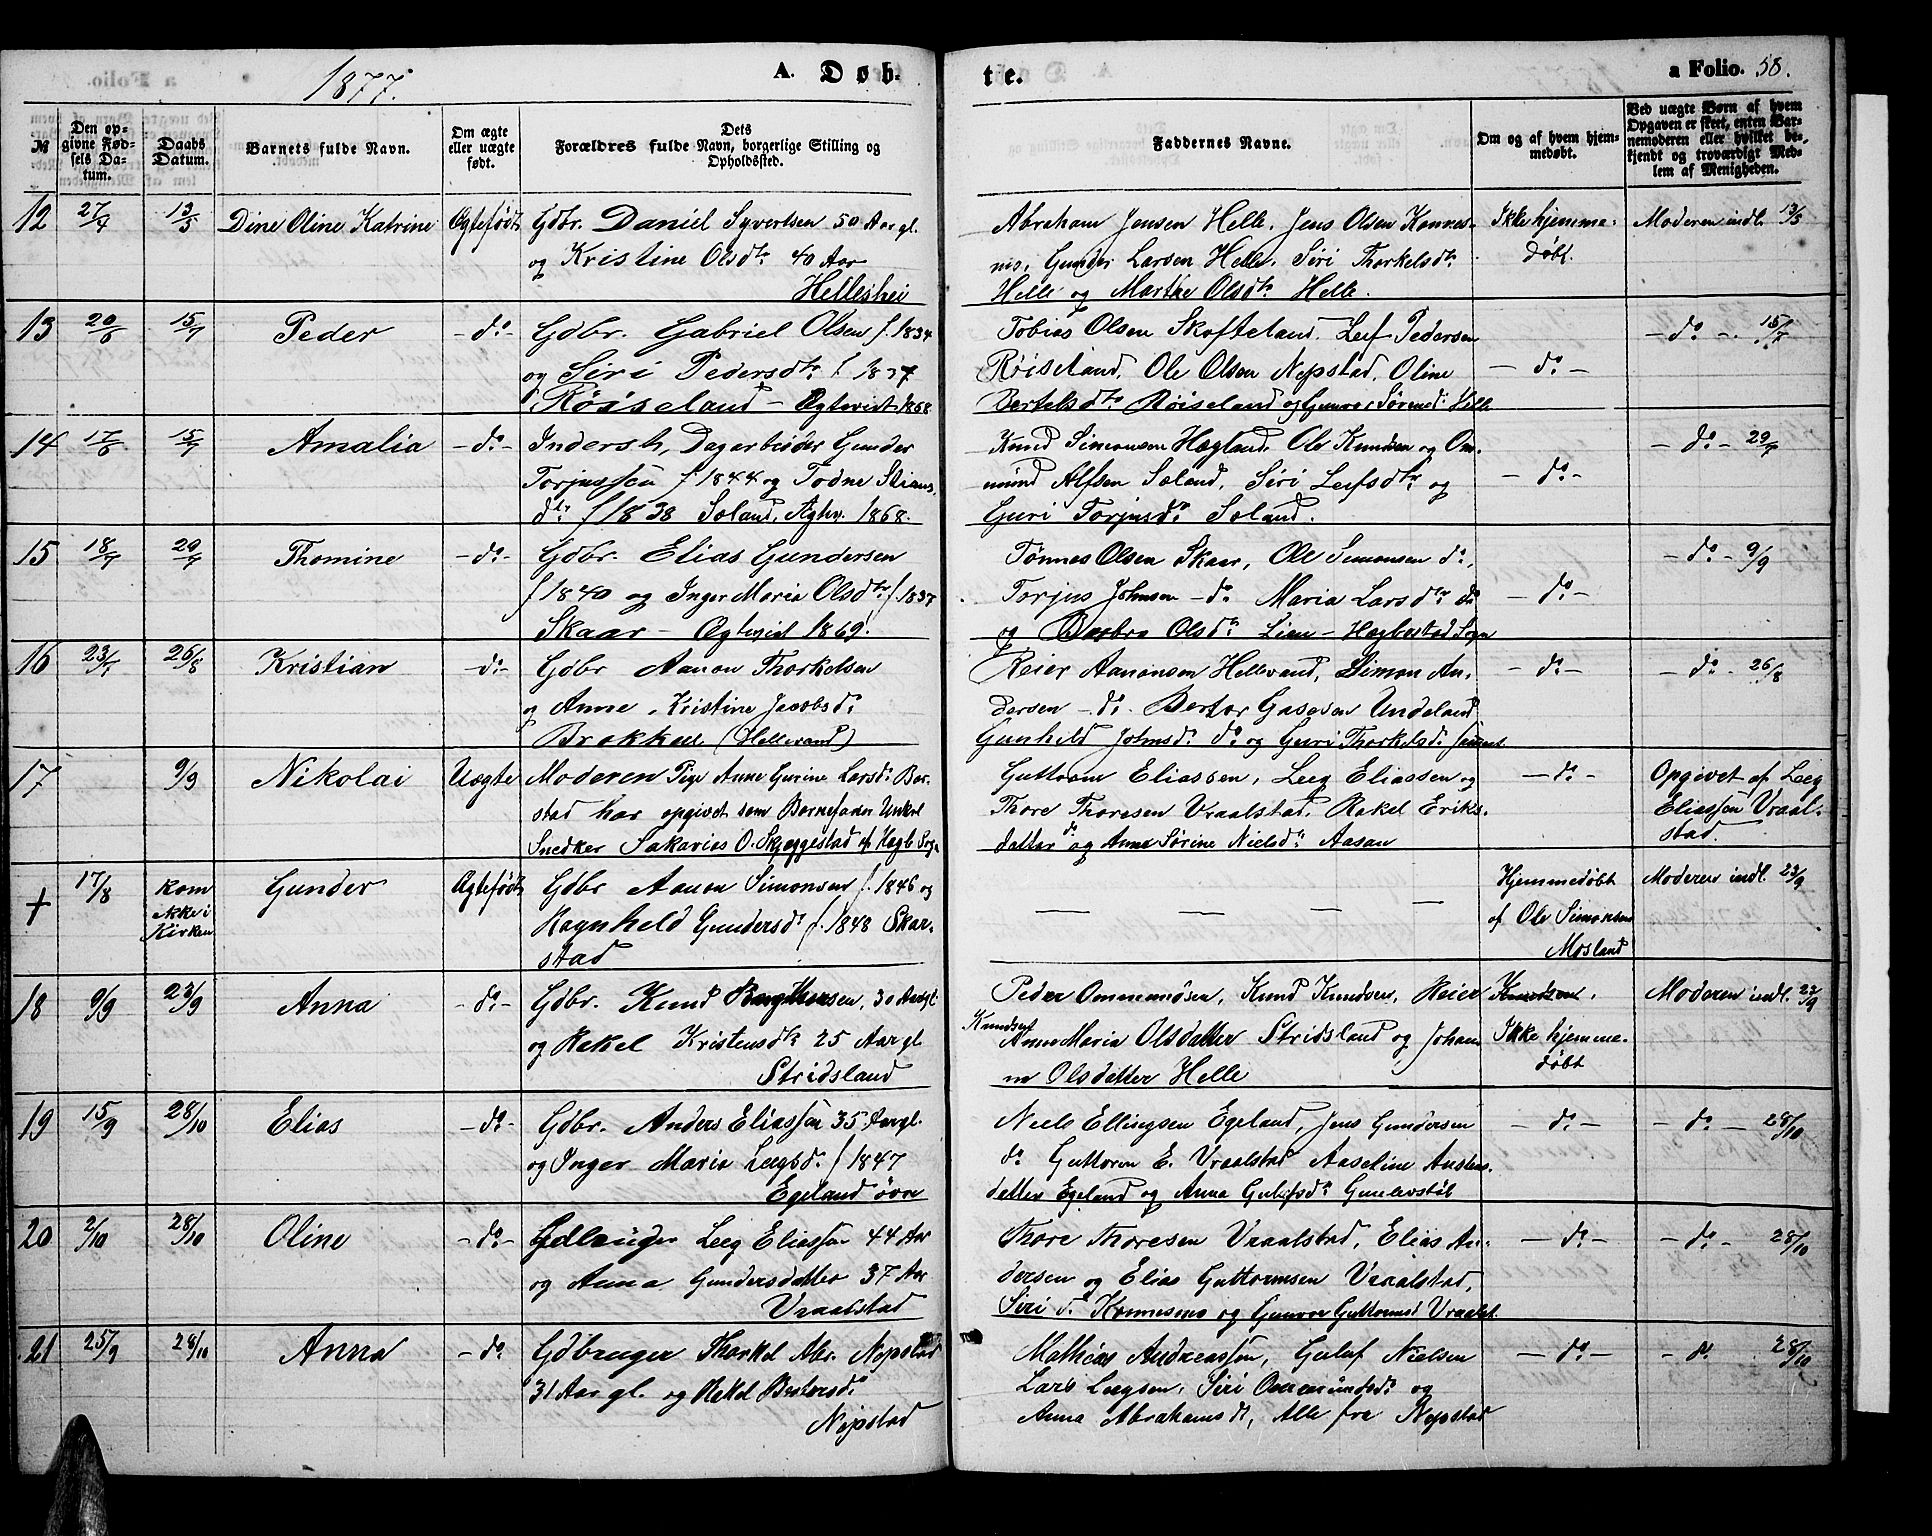 1877.
A. Døb-
te.
a Folio. 58.
№
Den op-
givne Fød-
sels Da-
tum.
Daabs
Datum.
Barnets fulde Navn.
Om ægte
eller uægte
født.
Dets
Forældres fulde Navn, borgerlige Stilling og
Opholdssted.
Faddernes Navne.
Om og af hvem hjem-
medøbt.
Ved uægte Børn af hvem
Opgaven er skeet, enten Bar-
nemoderen eller hvilket be-
kjendt og troværdigt Med-
lem af Menigheden.
12 27/4 13/5 Dine Oline Katrine Ægtefødt Gdbr. Daniel Syvertsen 50 Aar gl.
og Kristine Olsdtr 40 Aar
Helleshei
Abraham Jensen Helle, Jens Olsen Konnes-
mo, Gunder Larsen Helle, Siri Thorkelsdtr
Helle og Marthe Olsdtr Helle.
Ikke hjemme-
døbt.
Moderen indl. 13/5
13 20/6 15/7 Peder -do- Gdbr. Gabriel Olsen f. 1834
og Siri Pedersdtr f 1837
Røiseland - Ægteviet 1868
Tobias Olsen Skofteland, Leif Pedersen
Røiseland, Ole Olsen Nepstad, Oline
Bertelsdtr Røiseland og Gunvor Sørensd. Helle
-do-
-do- 15/7
14 17/6 15/7 Amalia -do- Indersh, Dagarbeider Gunder
Torjussen f 1844 og Todne Stians-
dtr f 1838 Soland, Ægtev. 1868.
Knud Simonsen Høgland, Ole Knudsen og Om-
mund Alfsen Soland, Siri Leifsdtr og
Guri Torjusdr Soland.
-do-
-do- 29/7
15 18/7 29/7 Thomine -do- Gdbr. Elias Gundersen
f 1840 og Inger Maria Olsdtr f. 1837
Skaar - Ægteviet 1869.
Tønnes Olsen Skaar, Ole Simonsen do,
Torjus Johnsen -do Maria Larsdtr do
og Barbro Olsdr Lien - Hægbostad Sogn
-do-
-do- 9/9
16 23/7 26/8 Kristian -do- Gdbr Aanon Thorkelsen
og Anne Kristine Jacobsdr
Brekken (Hellevand)
Reier Aanonsen Hellevand, Simon An-
dersen -do. Bertor Gasesen Undeland
Gunhild Johnsdr do og Guri Thorkelsdr
-do-
-do- 26/8
17 9/9 Nikolai Uægte Moderen Pige Anne Gurine Larsdr Bor-
stad har opgivet som Barnefader Unkel
Snedker Sakarias O. Skjeggestad af Hægb Sogn
Guttorm Eliassen, Leeg Eliassen og
Thore Thoresen Vraalstad, Rakel Eriks-
datter do og Anne Sørine Nielsdr Aasan
-do-
Opgivet af Leeg
Eliassen Vraal-
stad.
+ 17/8 kom
ikke i
Kirken
Gunder Ægtefødt Gdbr Aanon Simonsen f. 1846 og
Ragnhild Gundersdr f. 1848 Skar-
stad
Hjemmedøbt
af Ole Simonsen
Mosland
Moderen indl. 23/9
18 9/9 23/9 Anna -do- Gdbr. Knud Bergthorsen, 30 Aar gl.
og Rakel Kristensdtr 25 Aar gl
Stridsland
Peder Ommundsen, Knud Knudsen, Reier Knudsen,
Knudsen
Anne Maria Olsdatter Stridsland og Johan-
ne Olsdatter Helle
Ikke hjemme-
døbt
Moderen indl. 23/9
19 15/9 28/10 Elias -do- Gdbr. Anders Eliassen 35 Aar gl.
og Inger Maria Leegsdr f 1847
Egeland øvre
Niels Ellingsen Egeland, Jens Gundersen
do Guttorm E. Vraalstad Aaseline Austens-
datter Egeland og Anna Gulefsdtr Gunlevstøl
-do-
-do- 28/10
20 2/10 28/10 Oline -do- Gdbruger Leeg Eliassen 44 Aar
og Anna Gundersdatter 37 Aar
Vraalstad
Thore Thoresen Vraalstad, Elias An-
dersen og Elias Guttormsen Vraalstad,
Siri do Konnesmo og Gunvor Guttormsd Vraalst.
-do-
-do- 28/10
21 25/9 28/10 Anna -do- Gdbruger Thorkel Abr. Nepstad
31 Aar gl. og Rakel Bertorsdr
Nepstad
Mathias Andreassen, Guluf Nielsen
Lars Leegsen, Siri Ommundsdr og
Anna Abrahamsdt, Alle fra Nepstad
-do-
-do- 28/10